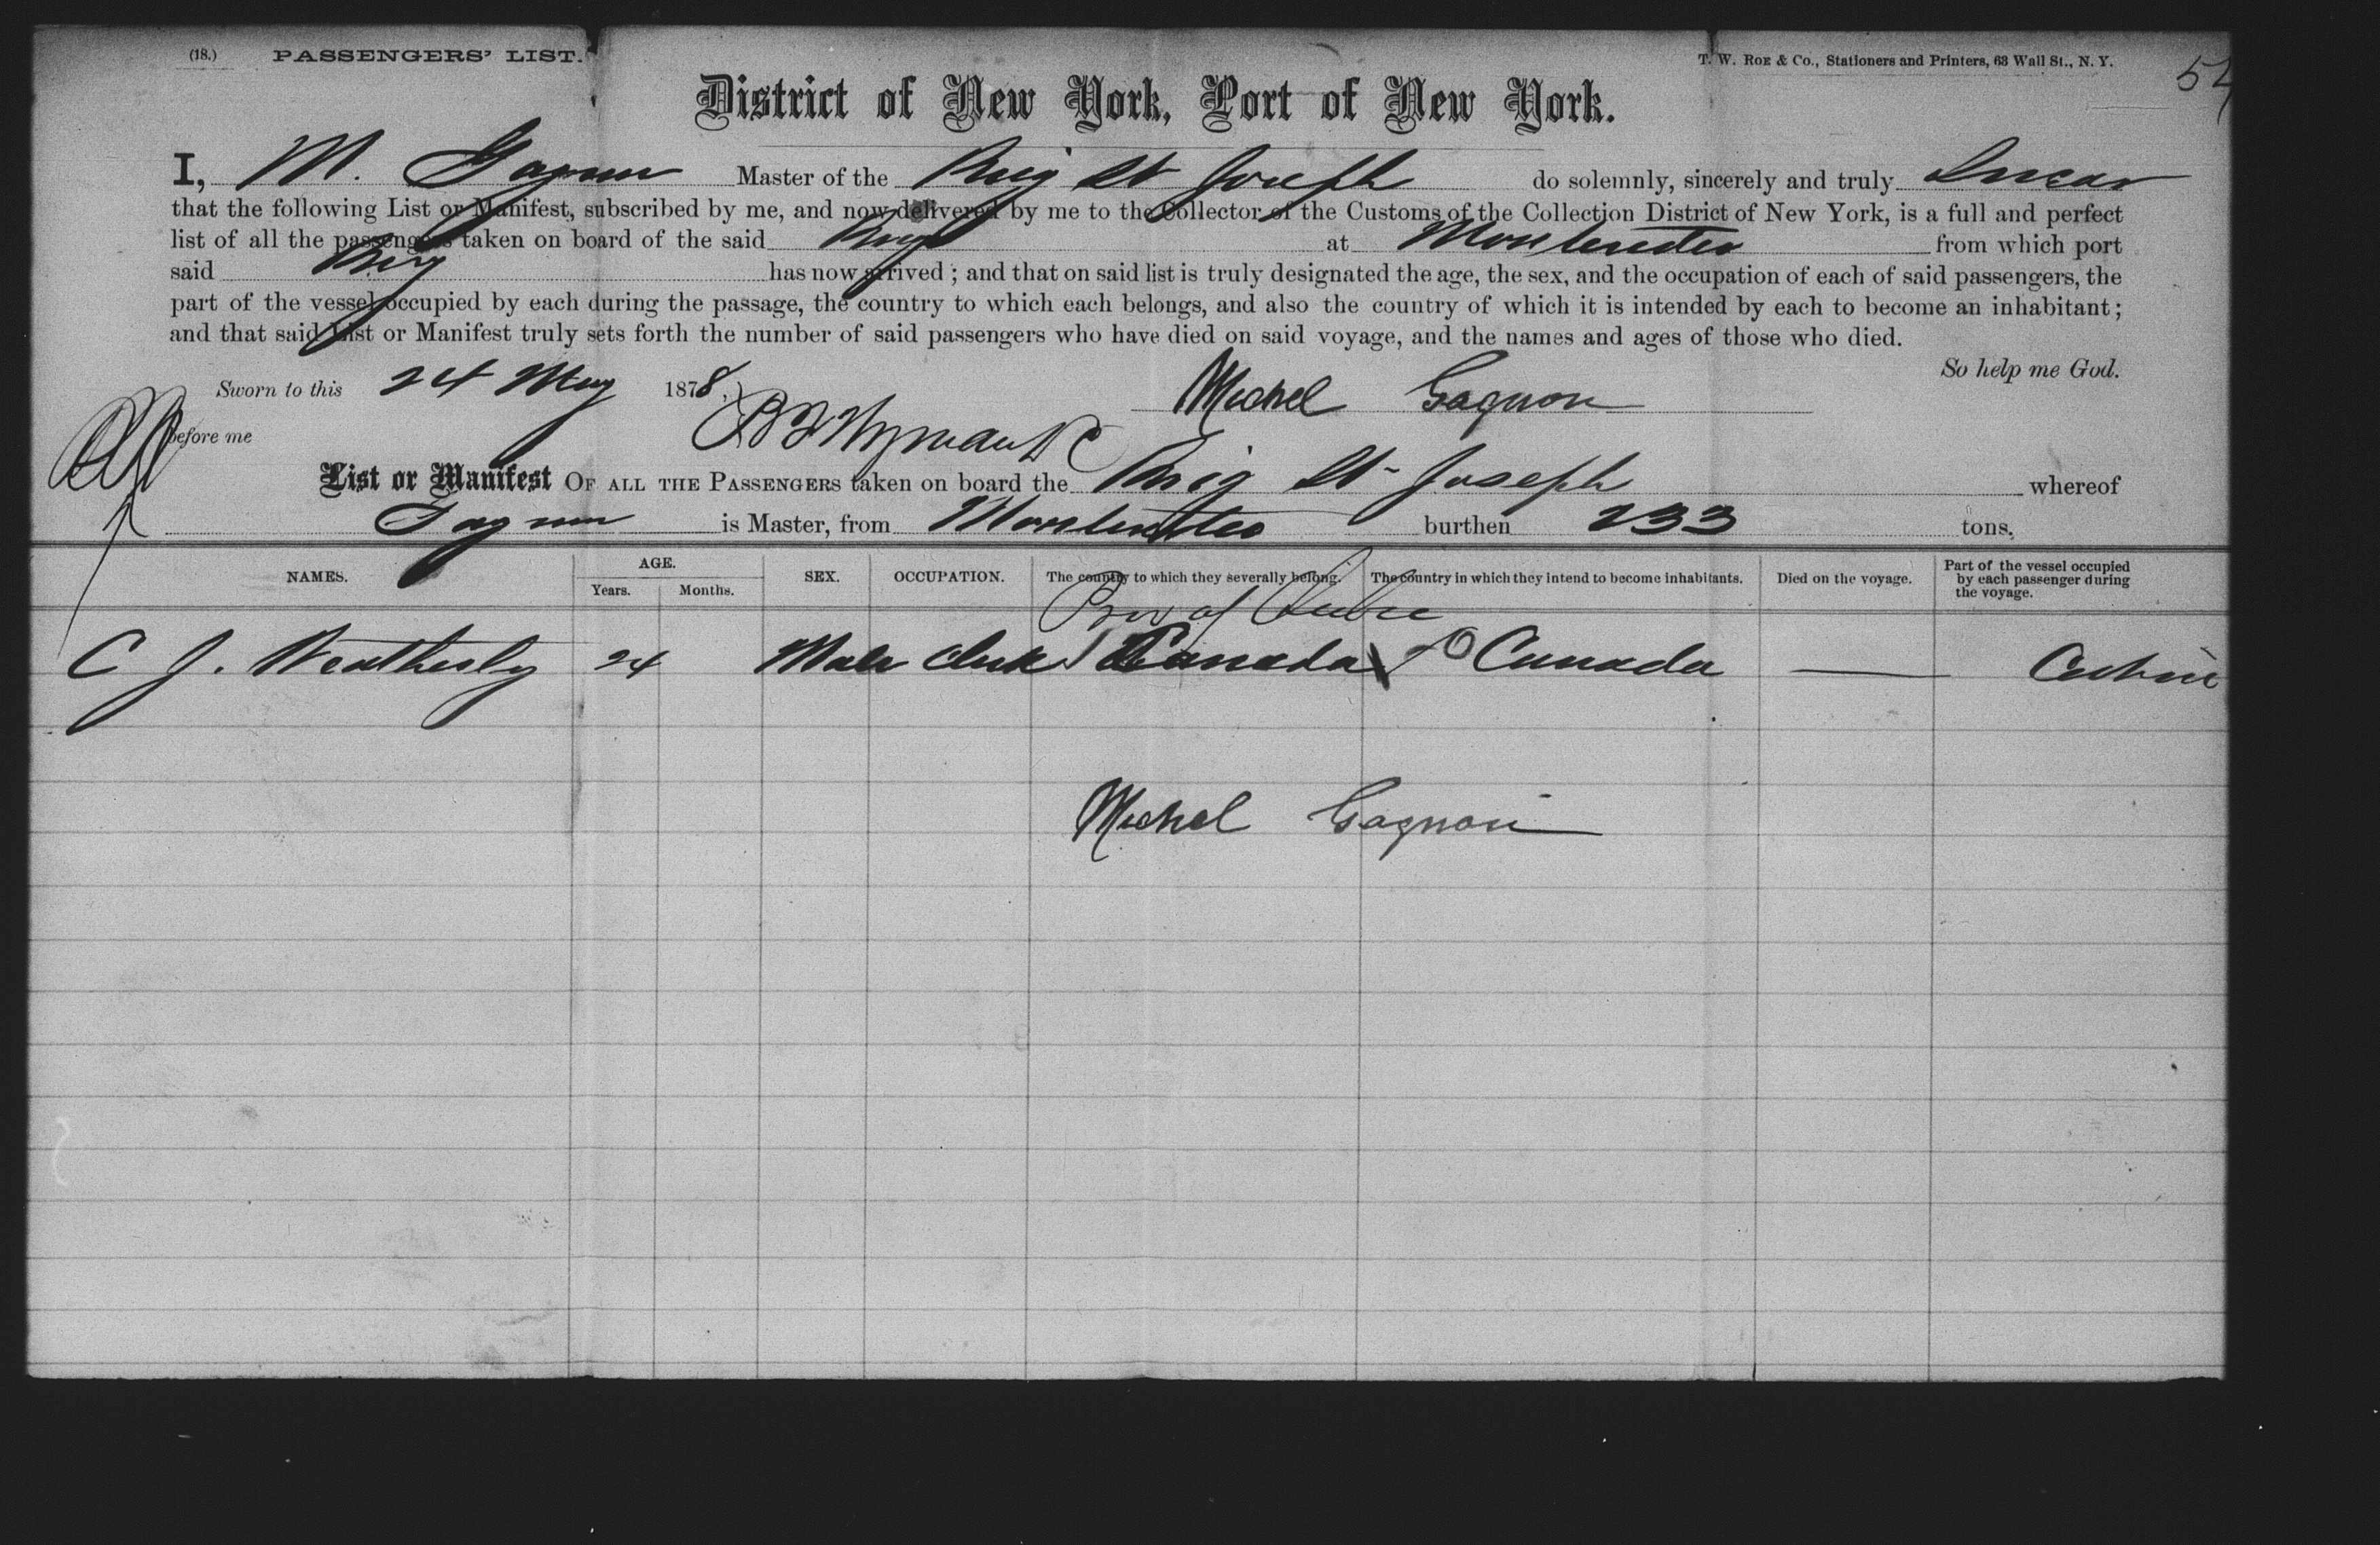 (18.) PASSENGERS' LIST.
T. W. ROE & Co., Stationers and Printers, 63 Wall St., N. Y.
District of New York, Port of New York.
I, M. Gagnon Master of the Brig St Joseph do solemnly, sincerely and truly Swear
that the following List or Manifest, subscribed by me, and now delivered by me to the Collector of the Customs of the Collection District of New York, is a full and perfect
list of all the passengers taken on board of the said Brig at Montevideo from which port
said Brig has now arrived; and that on said list is truly designated the age, the sex, and the occupation of each of said passengers, the
part of the vessel occupied by each during the passage, the country to which each belongs, and also the country of which it is intended by each to become an inhabitant;
and that said List or Manifest truly sets forth the number of said passengers who have died on said voyage, and the names and ages of those who died.
So help me God.
Sworn to this 24 May 1878,
Michel Gagnon
before me
List or Manifest OF ALL THE PASSENGERS taken on board the Brig St Joseph whereof
Gagnon is Master, from Montevideo burthen 233 tons.
NAMES. AGE. Years. Months. SEX. OCCUPATION. The country to which they severally belong. The country in which they intend to become inhabitants. Died on the voyage. Part of the vessel occupied by each passenger during the voyage.
Prov of
C J. Weatherly 24 Male Clerk Canada Canada — Cabin
Michel Gagnon